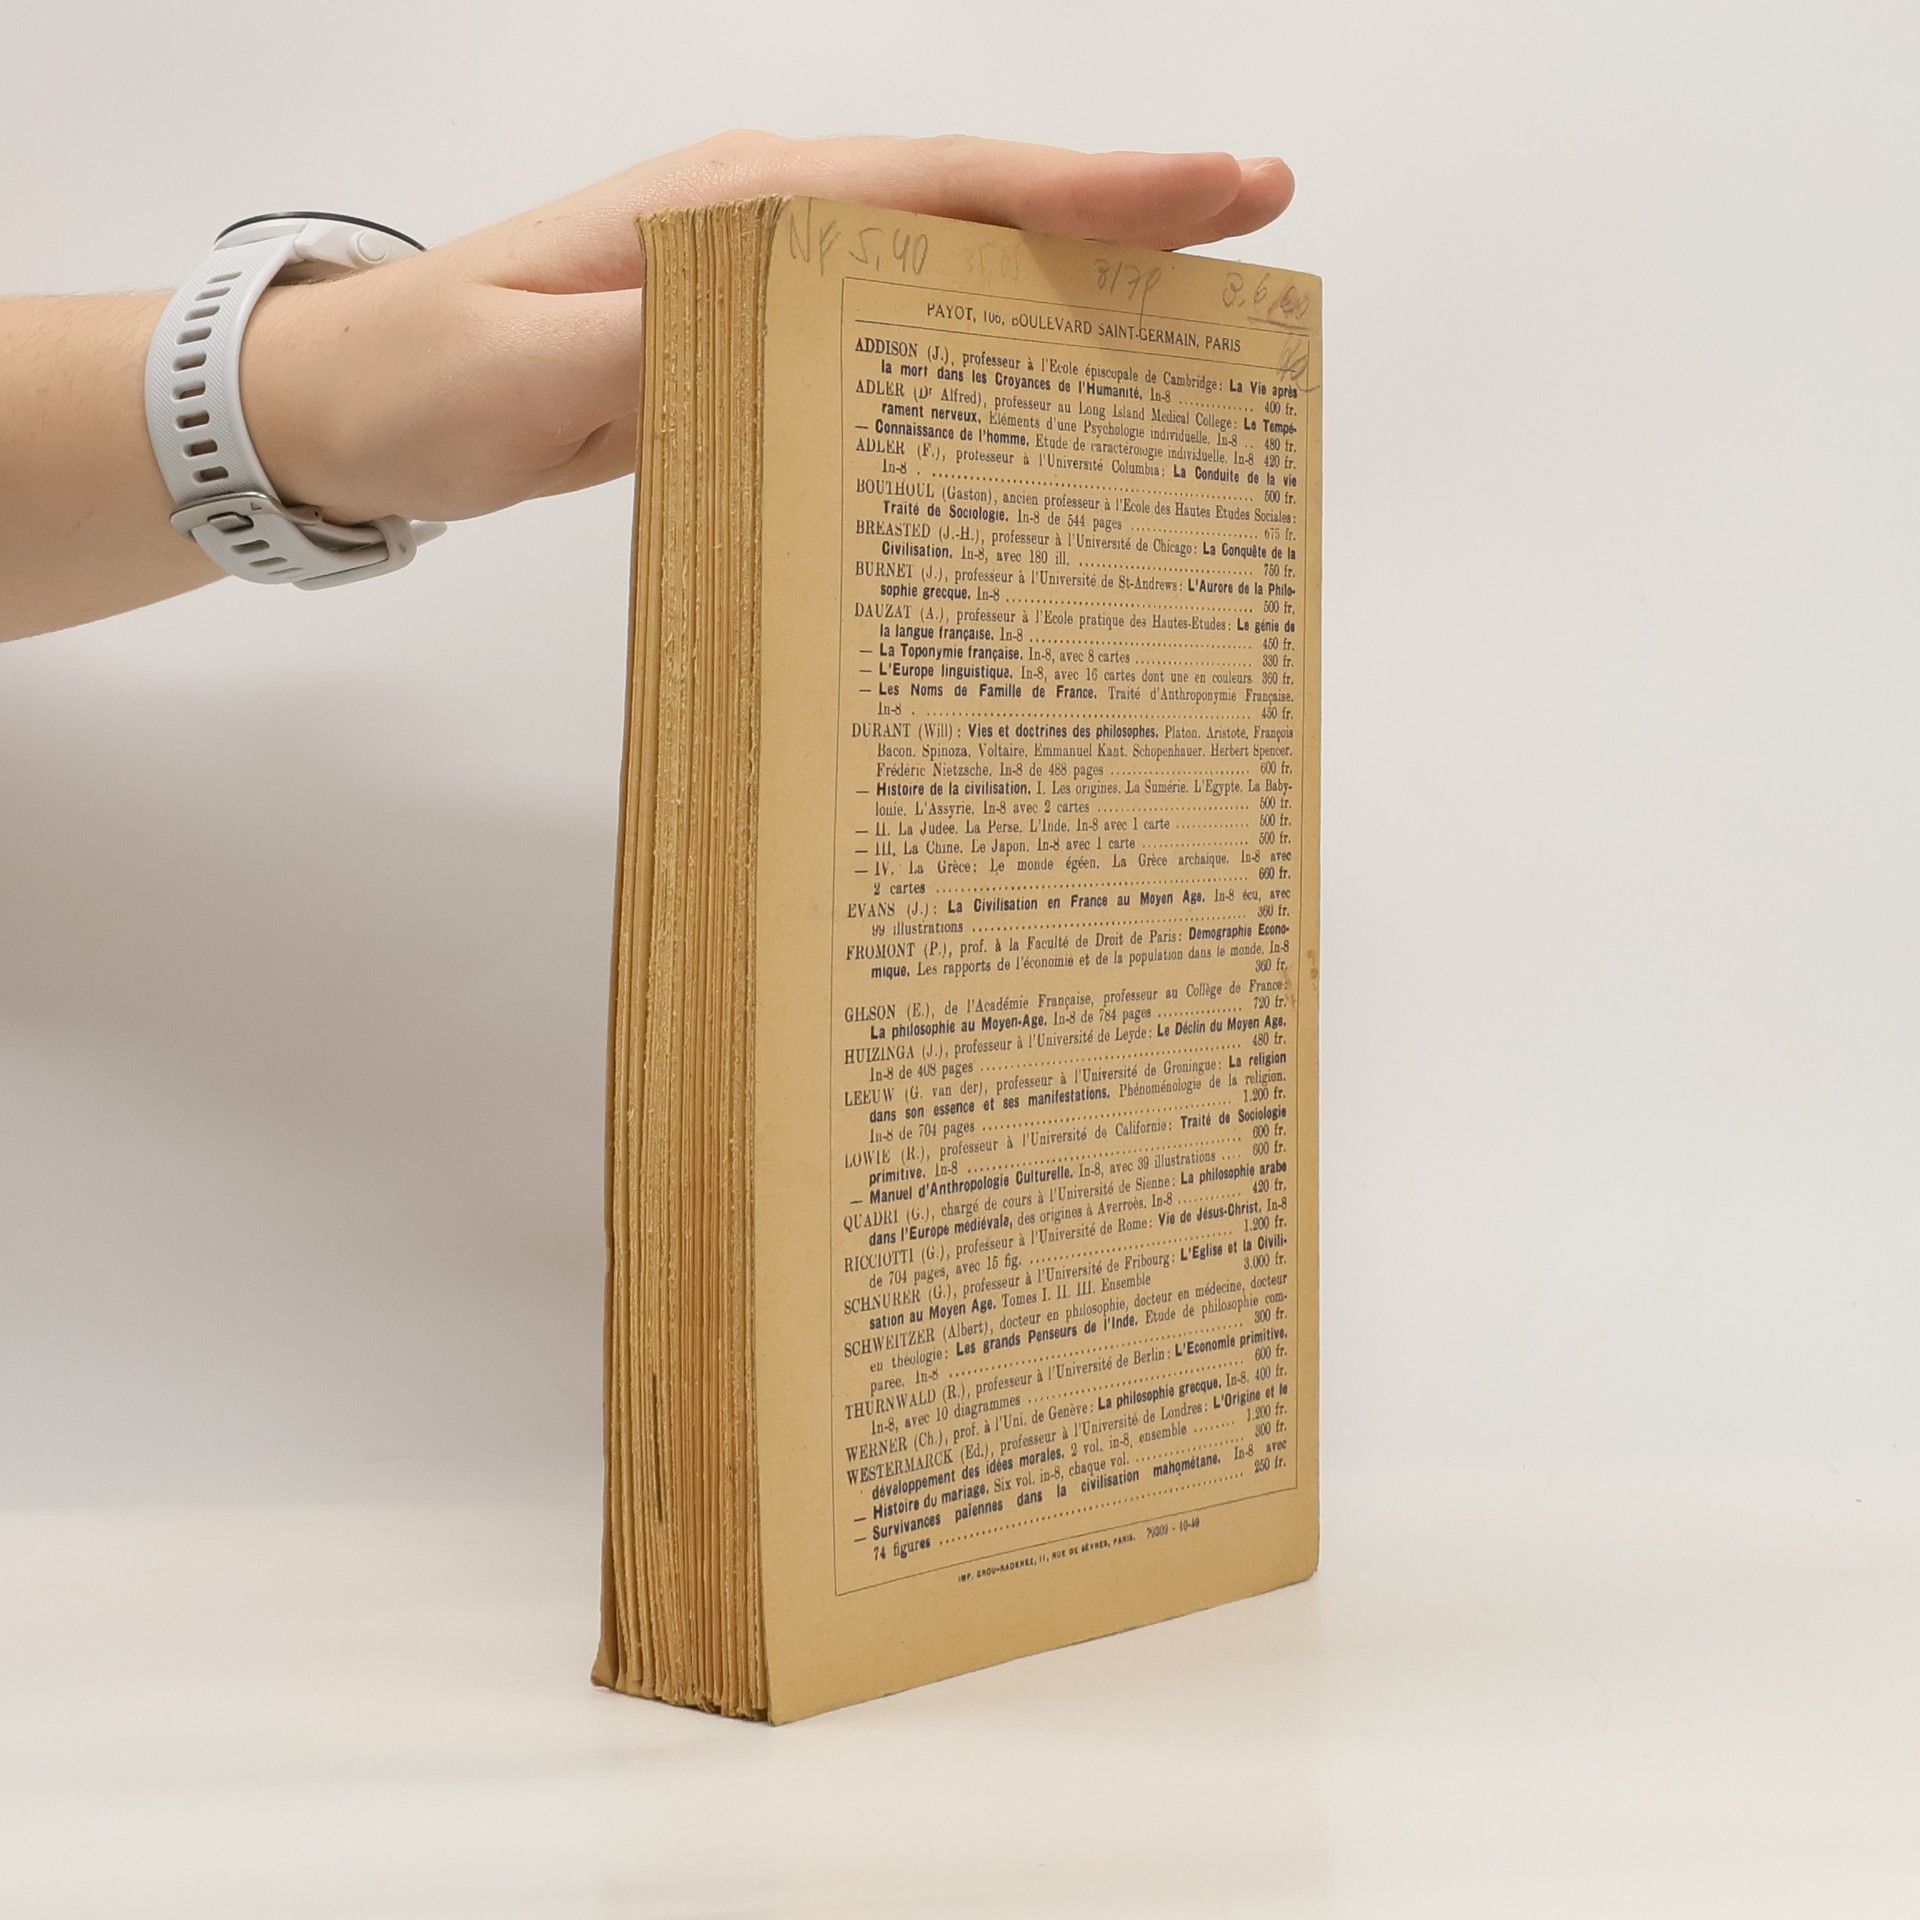 NF 5,40
3/79
PAYOT, 106, BOULEVARD SAINT-GERMAIN, PARIS
ADDISON (J.), professeur à l'Ecole épiscopale de Cambridge: La Vie après
la mort dans les Croyances de l'Humanité. In-8 ............ 400 fr.
ADLER (Dr Alfred), professeur au Long Island Medical College: Le Tempé-
rament nerveux. Eléments d'une Psychologie individuelle. In-8 .. 480 fr.
— Connaissance de l'homme. Etude de caractérologie individuelle. In-8 420 fr.
ADLER (F.), professeur à l'Université Columbia: La Conduite de la vie
In-8 . ............ 500 fr.
BOUTHOUL (Gaston), ancien professeur à l'Ecole des Hautes Etudes Sociales:
Traité de Sociologie. In-8 de 544 pages ............ 675 fr.
BREASTED (J.-H.), professeur à l'Université de Chicago: La Conquête de la
Civilisation. In-8, avec 180 ill. ............ 750 fr.
BURNET (J.), professeur à l'Université de St-Andrews: L'Aurore de la Philo-
sophie grecque. In-8 ............ 500 fr.
DAUZAT (A.), professeur à l'Ecole pratique des Hautes-Etudes: Le génie de
la langue française. In-8 ............ 450 fr.
— La Toponymie française. In-8, avec 8 cartes ............ 330 fr.
— L'Europe linguistique. In-8, avec 16 cartes dont une en couleurs 360 fr.
— Les Noms de Famille de France. Traité d'Anthroponymie Française.
In-8 . ............ 450 fr.
DURANT (Will) : Vies et doctrines des philosophes. Platon. Aristote. François
Bacon. Spinoza. Voltaire. Emmanuel Kant. Schopenhauer. Herbert Spencer.
Frédéric Nietzsche. In-8 de 488 pages ............ 600 fr.
— Histoire de la civilisation. I. Les origines. La Sumérie. L'Egypte. La Baby-
lonie. L'Assyrie. In-8 avec 2 cartes ............ 500 fr.
— II. La Judée. La Perse. L'Inde. In-8 avec 1 carte ............ 500 fr.
— III. La Chine. Le Japon. In-8 avec 1 carte ............ 500 fr.
— IV. La Grèce: Le monde égéen. La Grèce archaïque. In-8 avec
2 cartes ............ 660 fr.
EVANS (J.): La Civilisation en France au Moyen Age. In-8 écu, avec
99 illustrations ............ 360 fr.
FROMONT (P.), prof. à la Faculté de Droit de Paris: Démographie Econo-
mique. Les rapports de l'économie et de la population dans le monde. In-8
360 fr.
GILSON (E.), de l'Académie Française, professeur au Collège de France:
La philosophie au Moyen-Age. In-8 de 784 pages ............ 720 fr.
HUIZINGA (J.), professeur à l'Université de Leyde: Le Déclin du Moyen Age.
In-8 de 408 pages ............ 480 fr.
LEEUW (G. van der), professeur à l'Université de Groningue: La religion
dans son essence et ses manifestations. Phénoménologie de la religion.
In-8 de 704 pages ............ 1.200 fr.
LOWIE (R.), professeur à l'Université de Californie: Traité de Sociologie
primitive. In-8 ............ 600 fr.
— Manuel d'Anthropologie Culturelle. In-8, avec 39 illustrations .... 600 fr.
QUADRI (G.), chargé de cours à l'Université de Sienne: La philosophie arabe
dans l'Europe médiévale, des origines à Averroès. In-8 ............ 420 fr.
RICCIOTTI (G.), professeur à l'Université de Rome: Vie de Jésus-Christ. In-8
de 704 pages, avec 15 fig. ............ 1.200 fr.
SCHNURER (G.), professeur à l'Université de Fribourg: L'Eglise et la Civili-
sation au Moyen Age. Tomes I. II. III. Ensemble 3.000 fr.
SCHWEITZER (Albert), docteur en philosophie, docteur en médecine, docteur
en théologie: Les grands Penseurs de l'Inde. Etude de philosophie com-
parée. In-8 ............ 300 fr.
THURNWALD (R.), professeur à l'Université de Berlin: L'Economie primitive.
In-8, avec 10 diagrammes ............ 600 fr.
WERNER (Ch.), prof. à l'Uni. de Genève: La philosophie grecque. In-8. 400 fr.
WESTERMARCK (Ed.), professeur à l'Université de Londres: L'Origine et le
développement des idées morales. 2 vol. in-8, ensemble ........ 1.200 fr.
— Histoire du mariage. Six vol. in-8, chaque vol. ............ 300 fr.
— Survivances païennes dans la civilisation mahométane. In-8 avec
74 figures ............ 250 fr.
IMP. GROU-RADENEZ, 11, RUE DE SÈVRES, PARIS. 79309 - 10-49